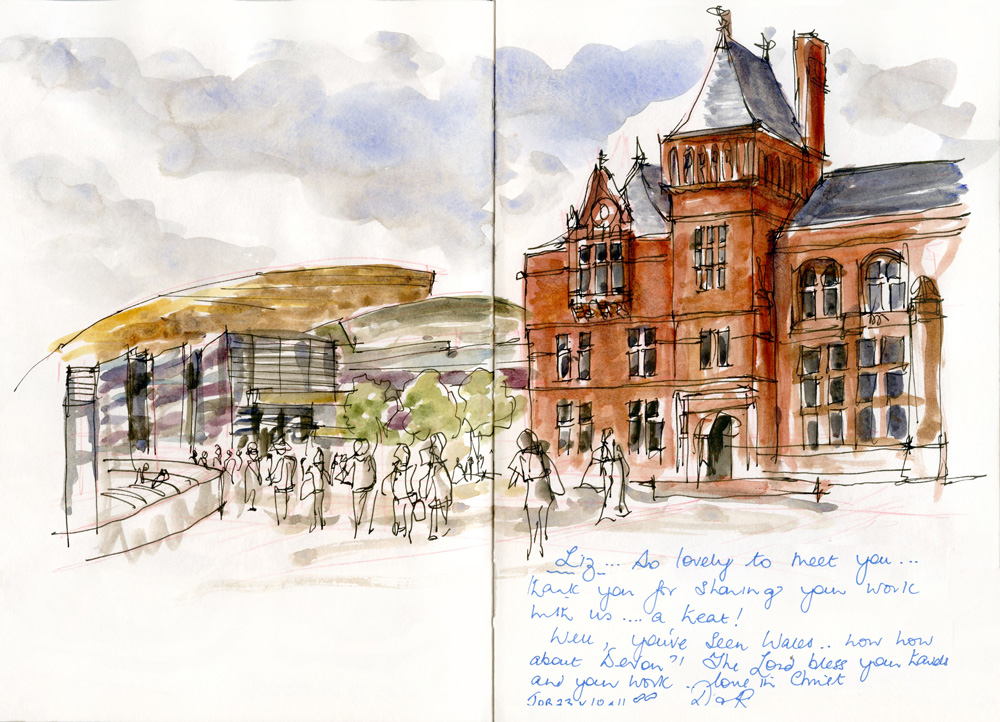 Liz ... So lovely to meet you ...
thank you for sharing your work
with us .... a treat!
Well, you've seen Wales .. now how
about Devon?! The Lord bless your hands
and your work .. love in Christ
JOB 23 v 10 & 11